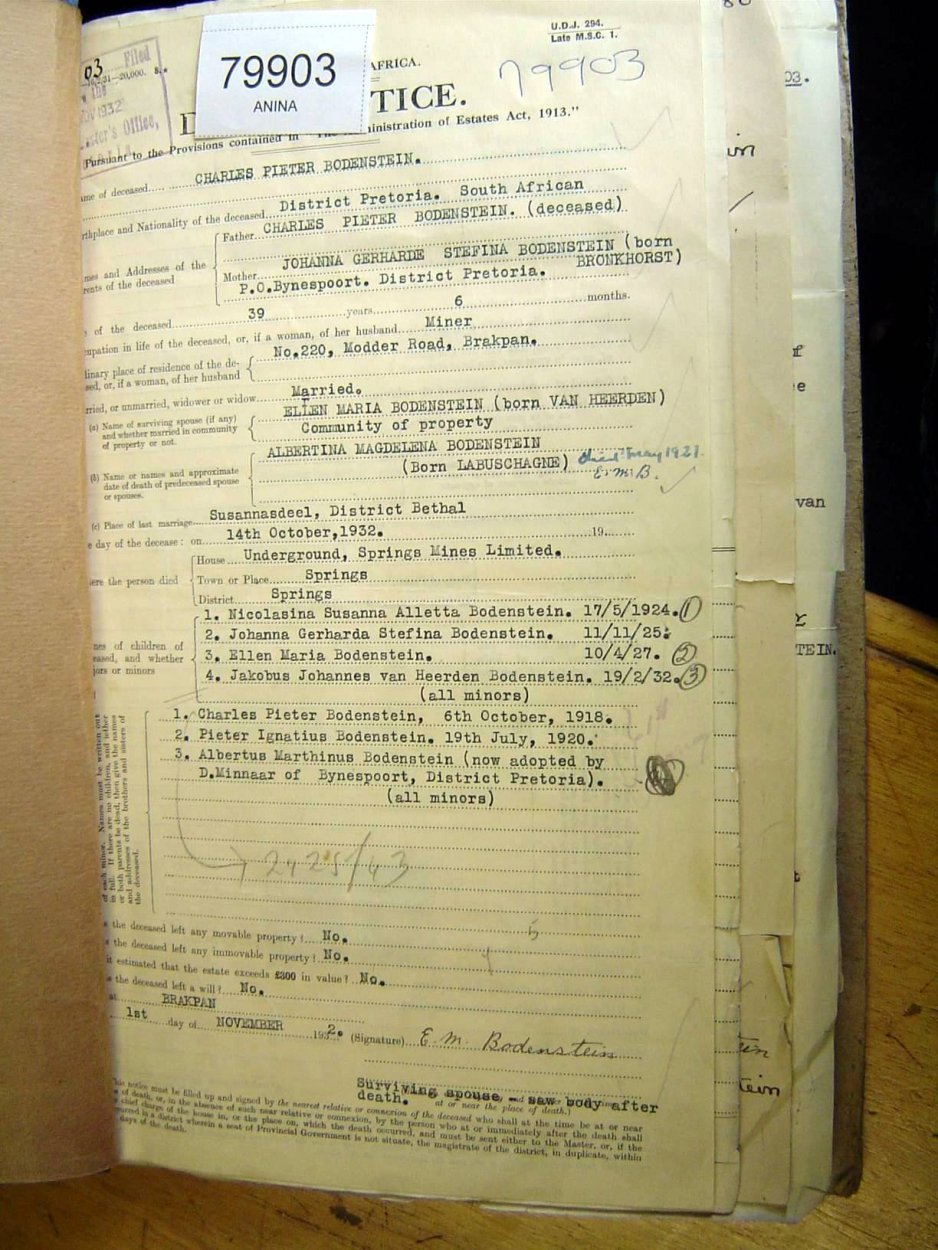 U.D.J. 294.
Late M.S.C. 1.
79903
ANINA
79903
AFRICA.
03
Filed
31—20,000. S.
1932
Office,
TICE.
Pursuant to the Provisions contained in "The Administration of Estates Act, 1913."
me of deceased CHARLES PIETER BODENSTEIN.
rthplace and Nationality of the deceased District Pretoria. South African
mes and Addresses of the
rents of the deceased
Father CHARLES PIETER BODENSTEIN. (deceased)
JOHANNA GERHARDE STEFINA BODENSTEIN (born
BRONKHORST)
Mother
P.O.Bynespoort. District Pretoria.
of the deceased 39 years 6 months.
upation in life of the deceased, or, if a woman, of her husband Miner
linary place of residence of the de-
sed, or, if a woman, of her husband
No.220, Modder Road, Brakpan.
rried, or unmarried, widower or widow Married.
(a) Name of surviving spouse (if any)
and whether married in community
of property or not.
ELLEN MARIA BODENSTEIN (born VAN HEERDEN)
Community of property
(b) Name or names and approximate
date of death of predeceased spouse
or spouses.
ALBERTINA MAGDELENA BODENSTEIN
(Born LABUSCHAGNE) died May 1921
E.M.B.
(c) Place of last marriage Susannasdeel, District Bethal
e day of the decease : on 14th October,1932. 19
ere the person died
House Underground, Springs Mines Limited.
Town or Place Springs
District Springs
nes of children of
eased, and whether
jors or minors
1. Nicolasina Susanna Alletta Bodenstein. 17/5/1924. 1
2. Johanna Gerharda Stefina Bodenstein. 11/11/25.
3. Ellen Maria Bodenstein. 10/4/27. 2
4. Jakobus Johannes van Heerden Bodenstein. 19/2/32. 3
(all minors)
1. Charles Pieter Bodenstein, 6th October, 1918.
2. Pieter Ignatius Bodenstein. 19th July, 1920.
3. Albertus Marthinus Bodenstein (now adopted by
D.Minnaar of Bynespoort, District Pretoria).
(all minors)
of each minor. Names must be written out
in full. If there are no children, and if either
or both parents be dead, then give the names
and addresses of the brothers and sisters of
the deceased.
2425/43
the deceased left any movable property? No.
the deceased left any immovable property? No.
it estimated that the estate exceeds £300 in value? No.
the deceased left a will? No.
at BRAKPAN
1st day of NOVEMBER 1932. (Signature) E. M. Bodenstein
Surviving spouse - saw body after
death.
at or near the place of death.)
his notice must be filled up and signed by the nearest relative or connexion of the deceased who shall at the time be at or near
of death, or, in the absence of such near relative or connexion, by the person who at or immediately after the death shall
chief charge of the house in, or the place on, which the death occurred, and must be sent either to the Master, or, if the
urred in a district wherein a seat of Provincial Government is not situate, the magistrate of the district, in duplicate, within
days of the death.
03.
van
TEIN.
tein